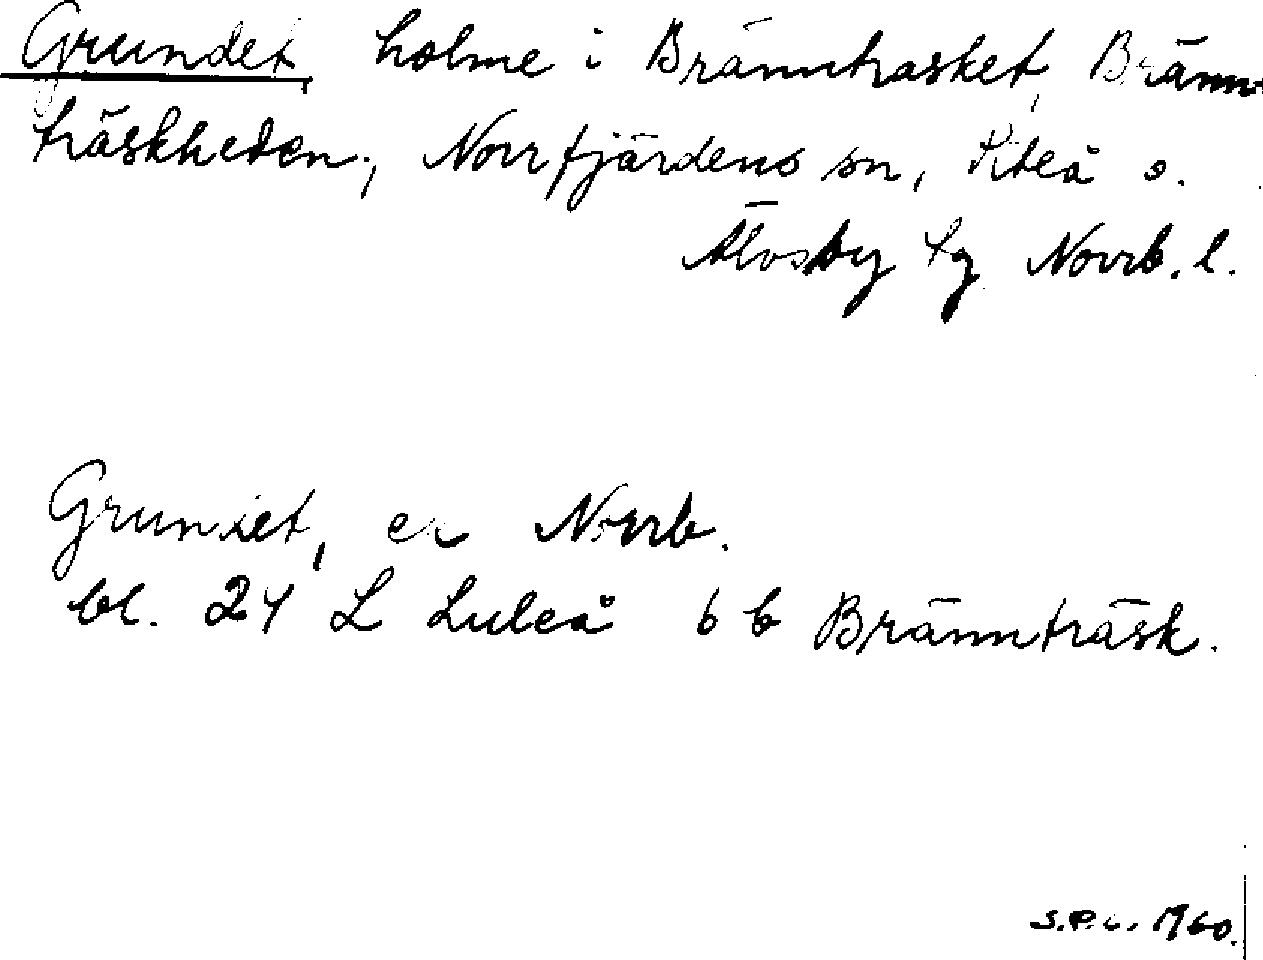 Grundet, holme i Brännträsket, Bränn-
träskheden, Norrfjärdens sn, Piteå o.
Älvsby tg Norrb. l.
Grundet, er Norrb.
bl. 24 L Luleå 6 b Brännträsk.
1960.